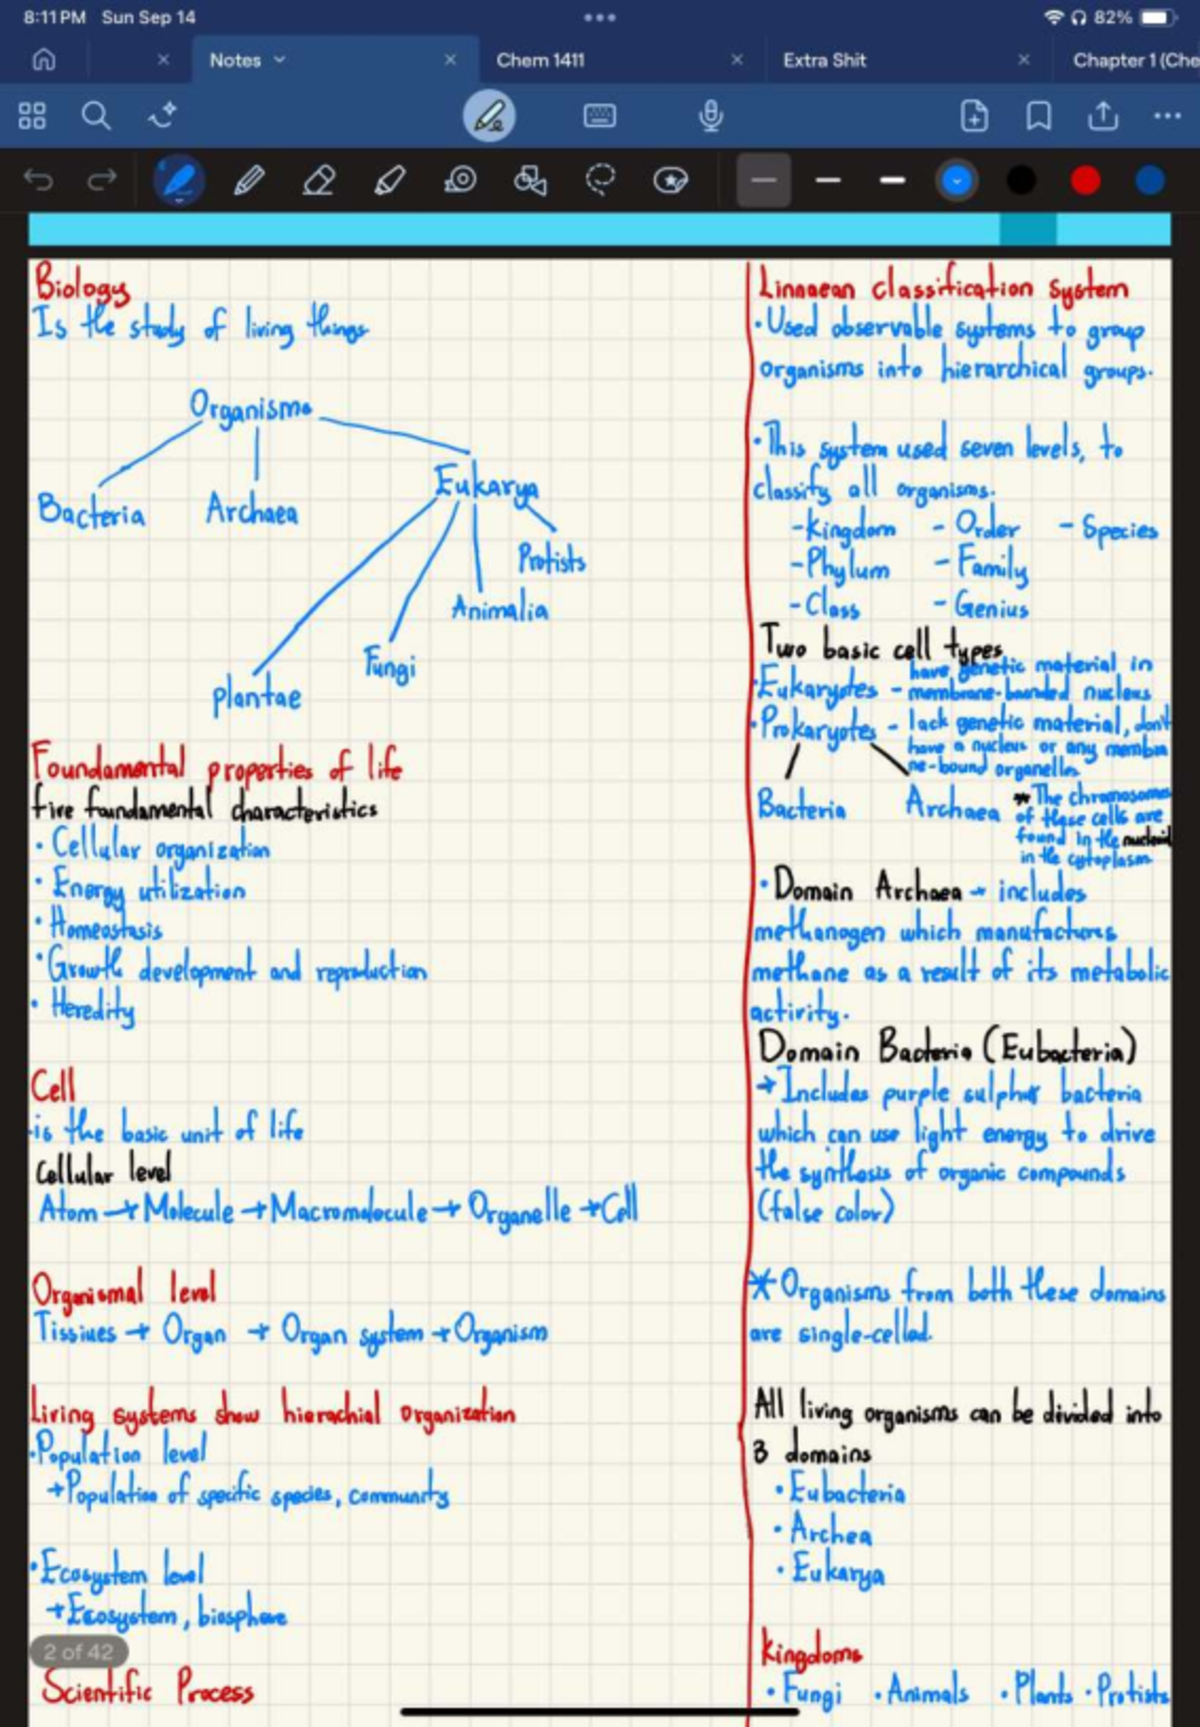 8:11 PM Sun Sep 14
82%
Notes
Chem 1411
Extra Shit
Chapter 1 (Che
Biology
Is the study of living things
Organisms
Bacteria
Archaea
Eukarya
Protists
Animalia
Fungi
Plantae
Foundamental properties of life
five fundamental characteristics
• Cellular organization
• Energy utilization
• Homeostasis
• Growth development and reproduction
• Heredity
Cell
•is the basic unit of life
Cellular level
Atom → Molecule → Macromolecule → Organelle → Cell
Organismal level
Tissiues → Organ → Organ system → Organism
Living systems show hierachial organization
•Population level
→Population of specific species, community
•Ecosystem level
→Ecosystem, biosphere
2 of 42
Scientific Process
Linnaean classification system
•Used observable systems to group
organisms into hierarchical groups.
•This system used seven levels, to
classify all organisms.
-Kingdom - Order - Species
-Phylum - Family
-Class - Genius
Two basic cell types
•Eukaryotes - have genetic material in
membrane-bounded nucleus
•Prokaryotes - lack genetic material, don't
have a nucleus or any membra
ne-bound organelles
Bacteria
Archaea
* The chromosomes
of these cells are
found in the nucleoid
in the cytoplasm
•Domain Archaea → includes
methanogen which manufactures
methane as a result of its metabolic
activity.
Domain Bacteria (Eubacteria)
→Includes purple sulphur bacteria
which can use light energy to drive
the synthesis of organic compounds
(false color)
* Organisms from both these domains
are single-celled.
All living organisms can be divided into
3 domains
• Eubacteria
• Archea
• Eukarya
Kingdoms
• Fungi • Animals • Plants • Protists